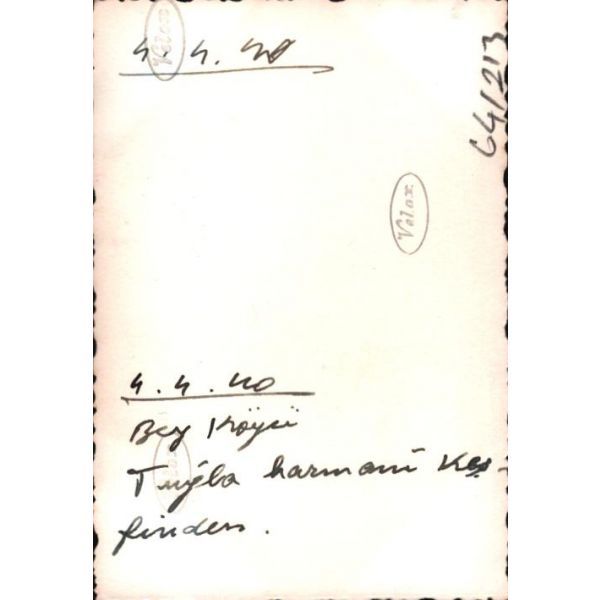 4.4.40
Velox
641213
Velox
4.4.40
Bey Köyü
Tuğla harmanı Keş-
finden.
Velox